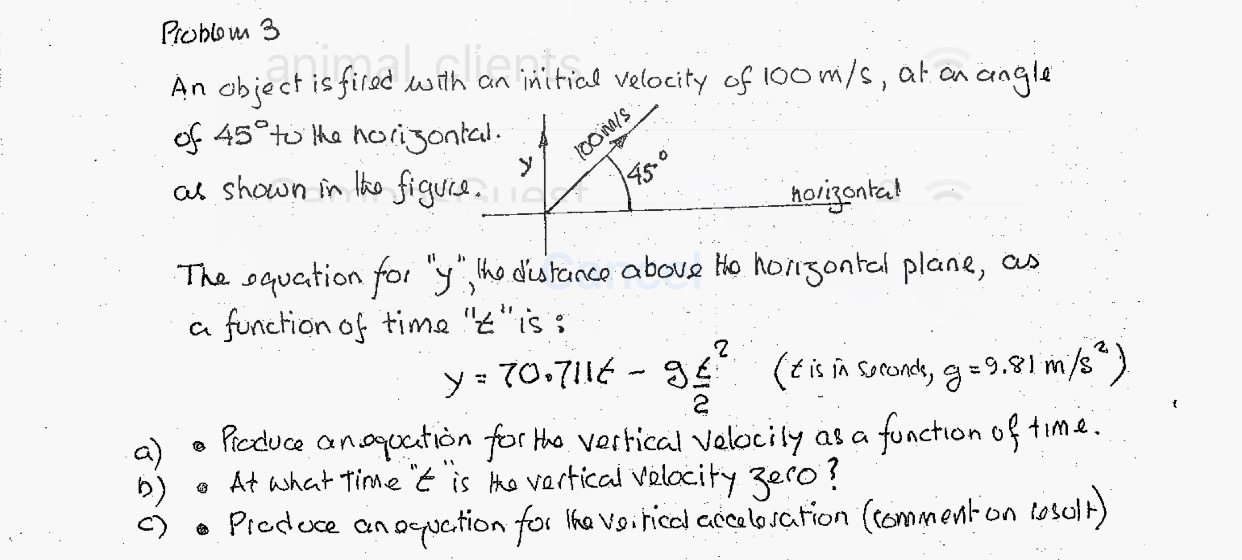 Problem 3
An object is fired with an initial velocity of 100 m/s, at an angle
of 45° to the horizontal.
as shown in the figure.
y
100 m/s
45°
horizontal
The equation for "y", the distance above the horizontal plane, as
a function of time "t" is :
y = 70.711t - g t²/2 (t is in seconds, g = 9.81 m/s²)
a) • Produce an equation for the vertical velocity as a function of time.
b) • At what time "t" is the vertical velocity zero?
c) • Produce an equation for the vertical acceleration (comment on result)
animal clients
Guest
Cancel